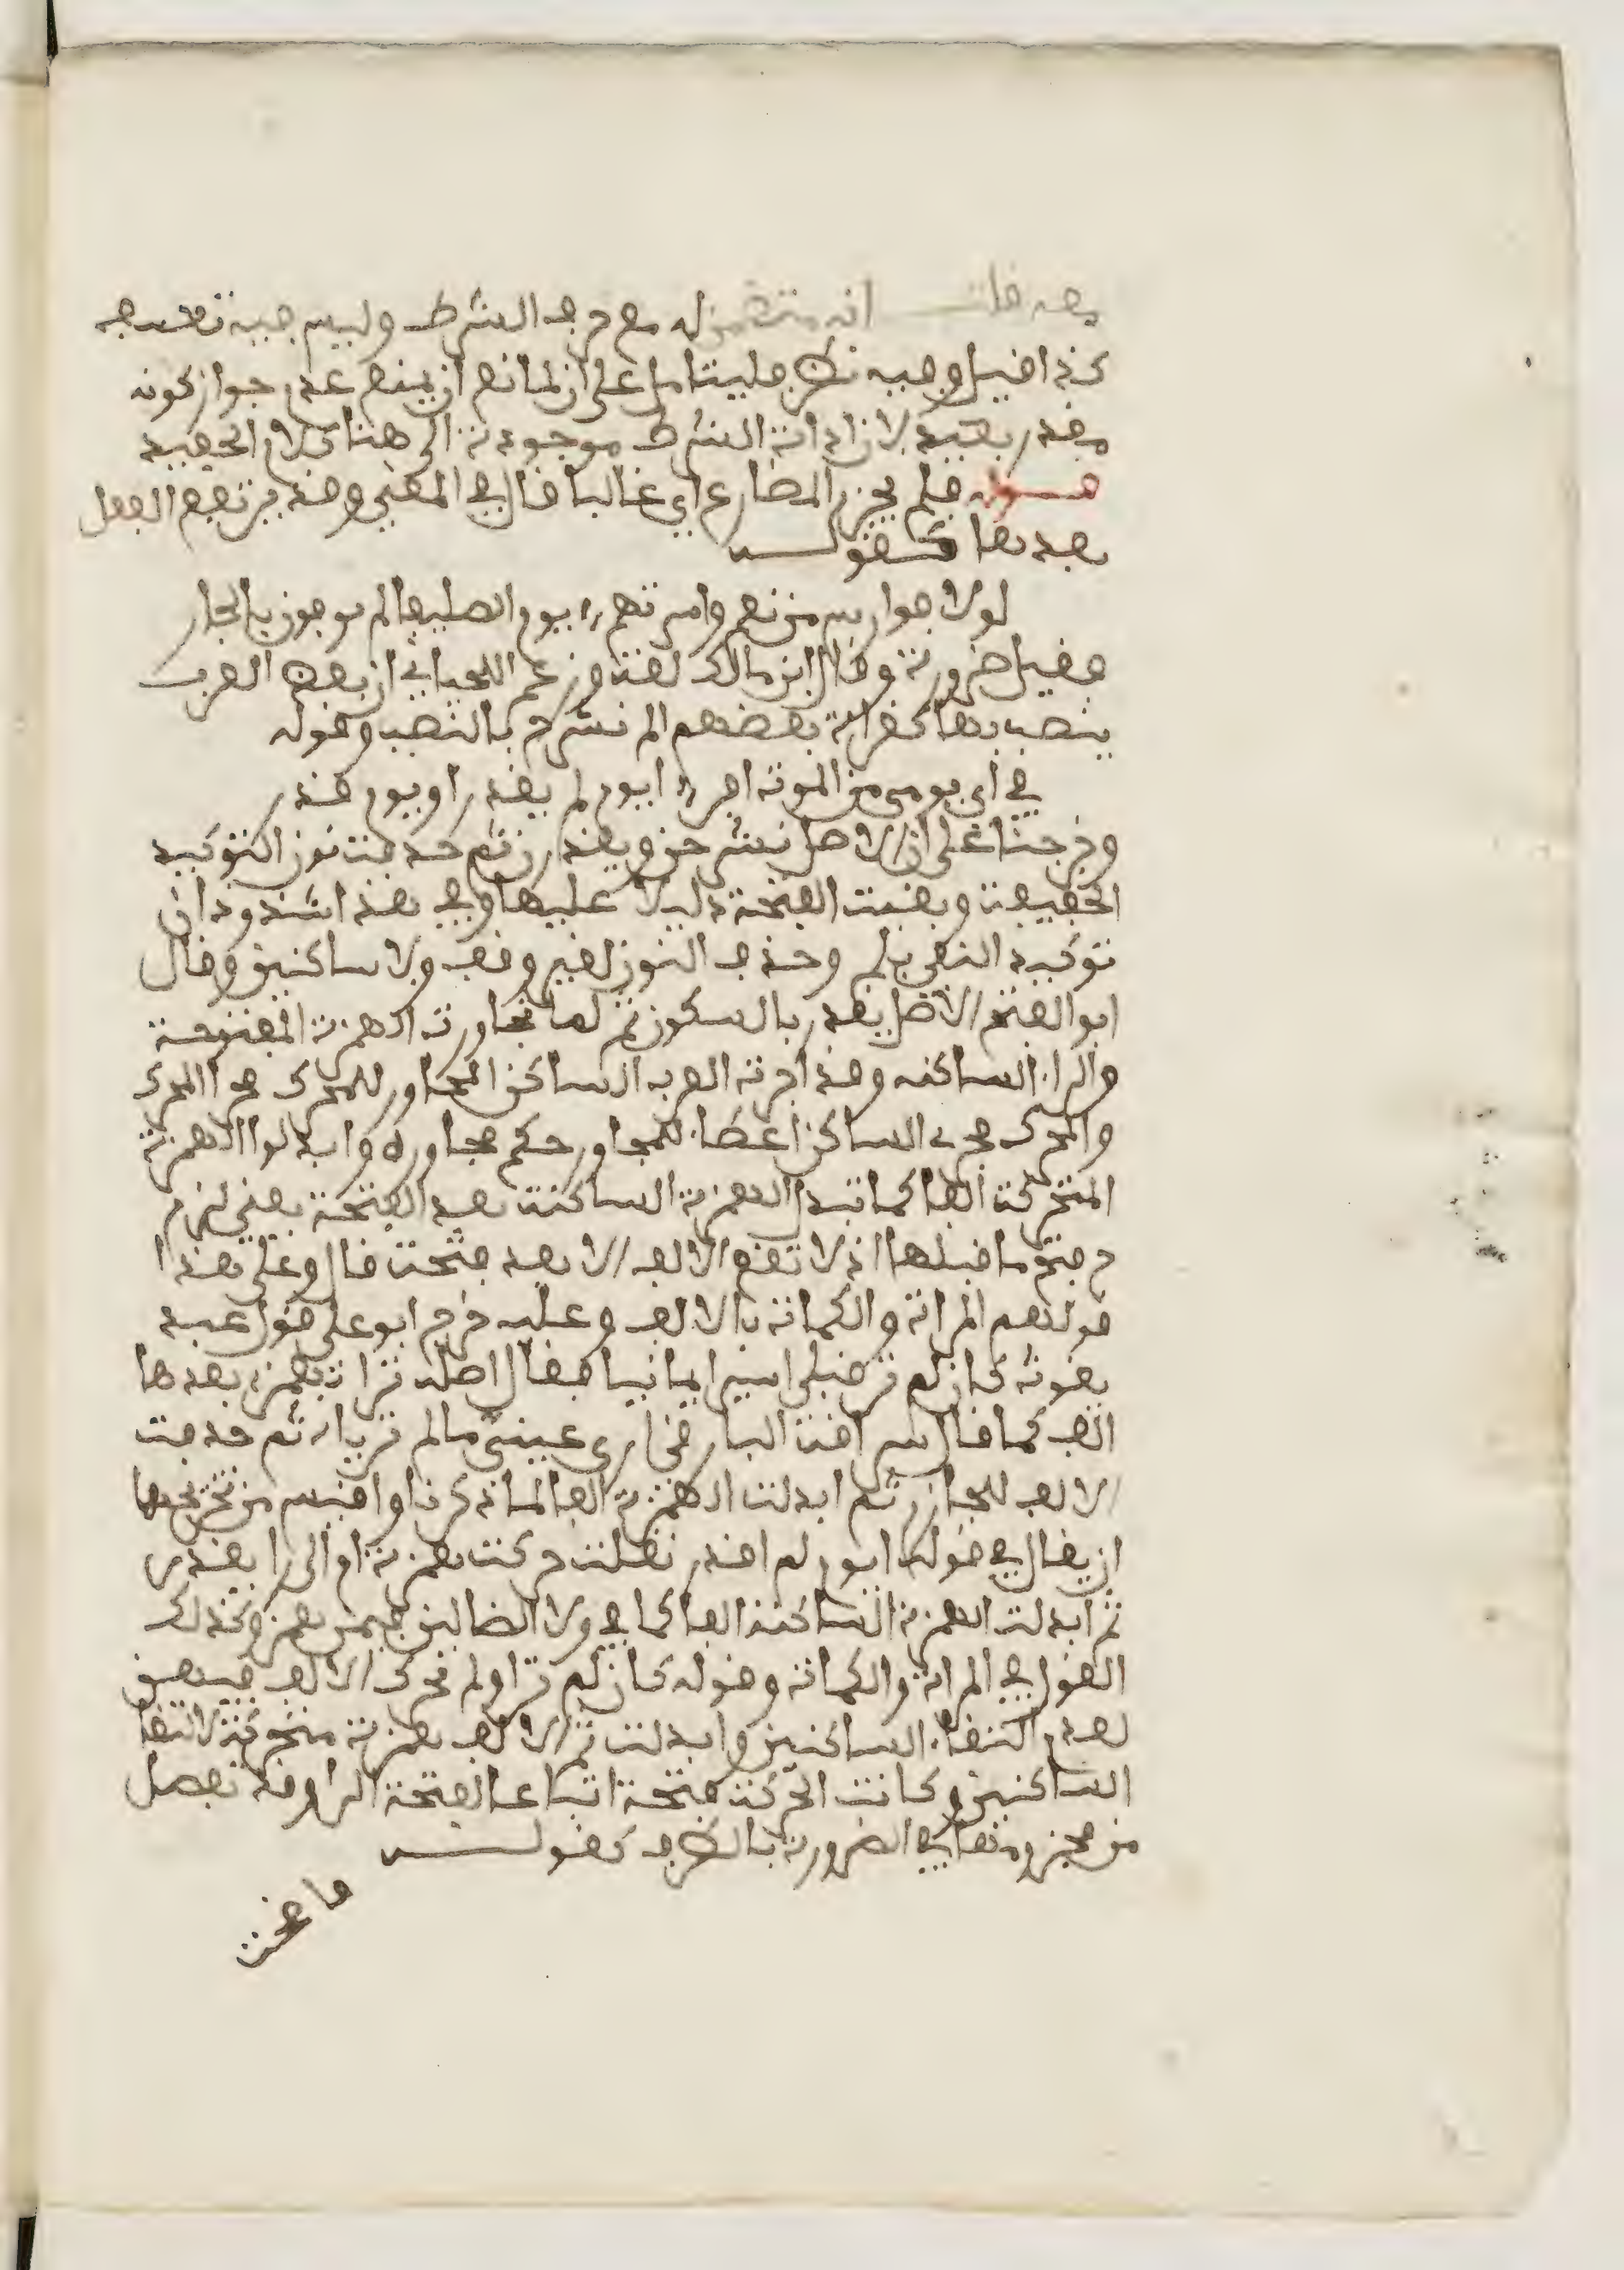 بعد قلت انه منقول مع حرف الشرط وليس فيه تعسف
كذا قيل وفيه نظر فليتامل على ان لمانع ان يمنع عدم جواز كونه
بعيد لان اداة الشرط موجودة الى هنا كلام الحفيد
قوله فلم يجزم المضارع اي غالبا قال في المغني وقد يرتفع الفعل
بعدها كقوله
لولا فوارس من نعم واسرتهم يوم الصليفا لم يوفون بالجار
فقيل ضرورة وقال ابن مالك لغة وزعم اللحياني ان بعض العرب
ينصب بها كقراءة بعضهم الم نشرح بالنصب وقوله
في اي يومي من الموت افر ايوم لم يقدر او يوم قدر
وخرجتا على ان الاصل نشرحن ويقدرن ثم حذفت نون التوكيد
الخفيفة وبقيت الفتحة دليلا عليها وفي هذا شذوذان
توكيد النفي بلم وحذف النون لغير وقف ولا ساكنين وقال
ابو الفتح الاصل يقدر بالسكون ثم لما تجاورت الهمزة المفتوحة
والراء الساكنه وقد اجرت العرب الساكن المجاور للمحرك مجرا المحرك
والمحرك مجرى الساكن اعطاء للمجاور حكم مجاوره وابدلوا الهمزة
المتحركة الفا كما تبدل الهمزة الساكنة بعد الفتحة يعني لزم
ح فتح ما قبلها اذ لا تقع الالف الا بعد فتحة قال وعلى هذا
قولهم المراة والكماة بالالف وعليه خرج ابو علي قول عبد
يغوث كان لم تر قبلي اسيرا يمانيا فقال اصله تراى بهمزة بعدها
الف كما قال سراقة البارقي ارى عيني ما لم تراياه ثم حذفت
الالف للجازم ثم ابدلت الهمزة الفا لما ذكرنا واقيس من تخريجهما
ان يقال في قوله ايوم لم اقدر نقلت حركت همزة ام الى را يقدر
ثم ابدلت الهمزة الساكنة الفا كما في ولا الضالين فيمن همز وكذلك
القول في المراة والكماة وقوله كان لم ترا ولم تحرك الالف فيهن
لعدم التقاء الساكنين وابدلت ثم الالف همزة متحركة لالتقا
الساكنين وكانت الحركة فتحة اتباعا لفتحة الرا وقد تفصل
من مجزومها في الضرورة بالظرف كقوله